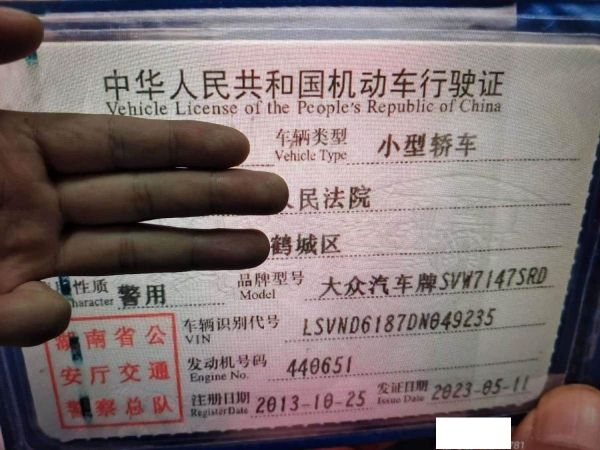 中华人民共和国机动车行驶证
Vehicle License of the People's Republic of China
车辆类型 小型轿车
Vehicle Type
人民法院
鹤城区
性质 警用 品牌型号 大众汽车牌SVW7147SRD
Character Model
湖南省公
安厅交通
警察总队
车辆识别代号 LSVND6187DN049235
VIN
发动机号码 440651
Engine No.
注册日期 2013-10-25 发证日期 2023-05-11
Register Date Issue Date
781